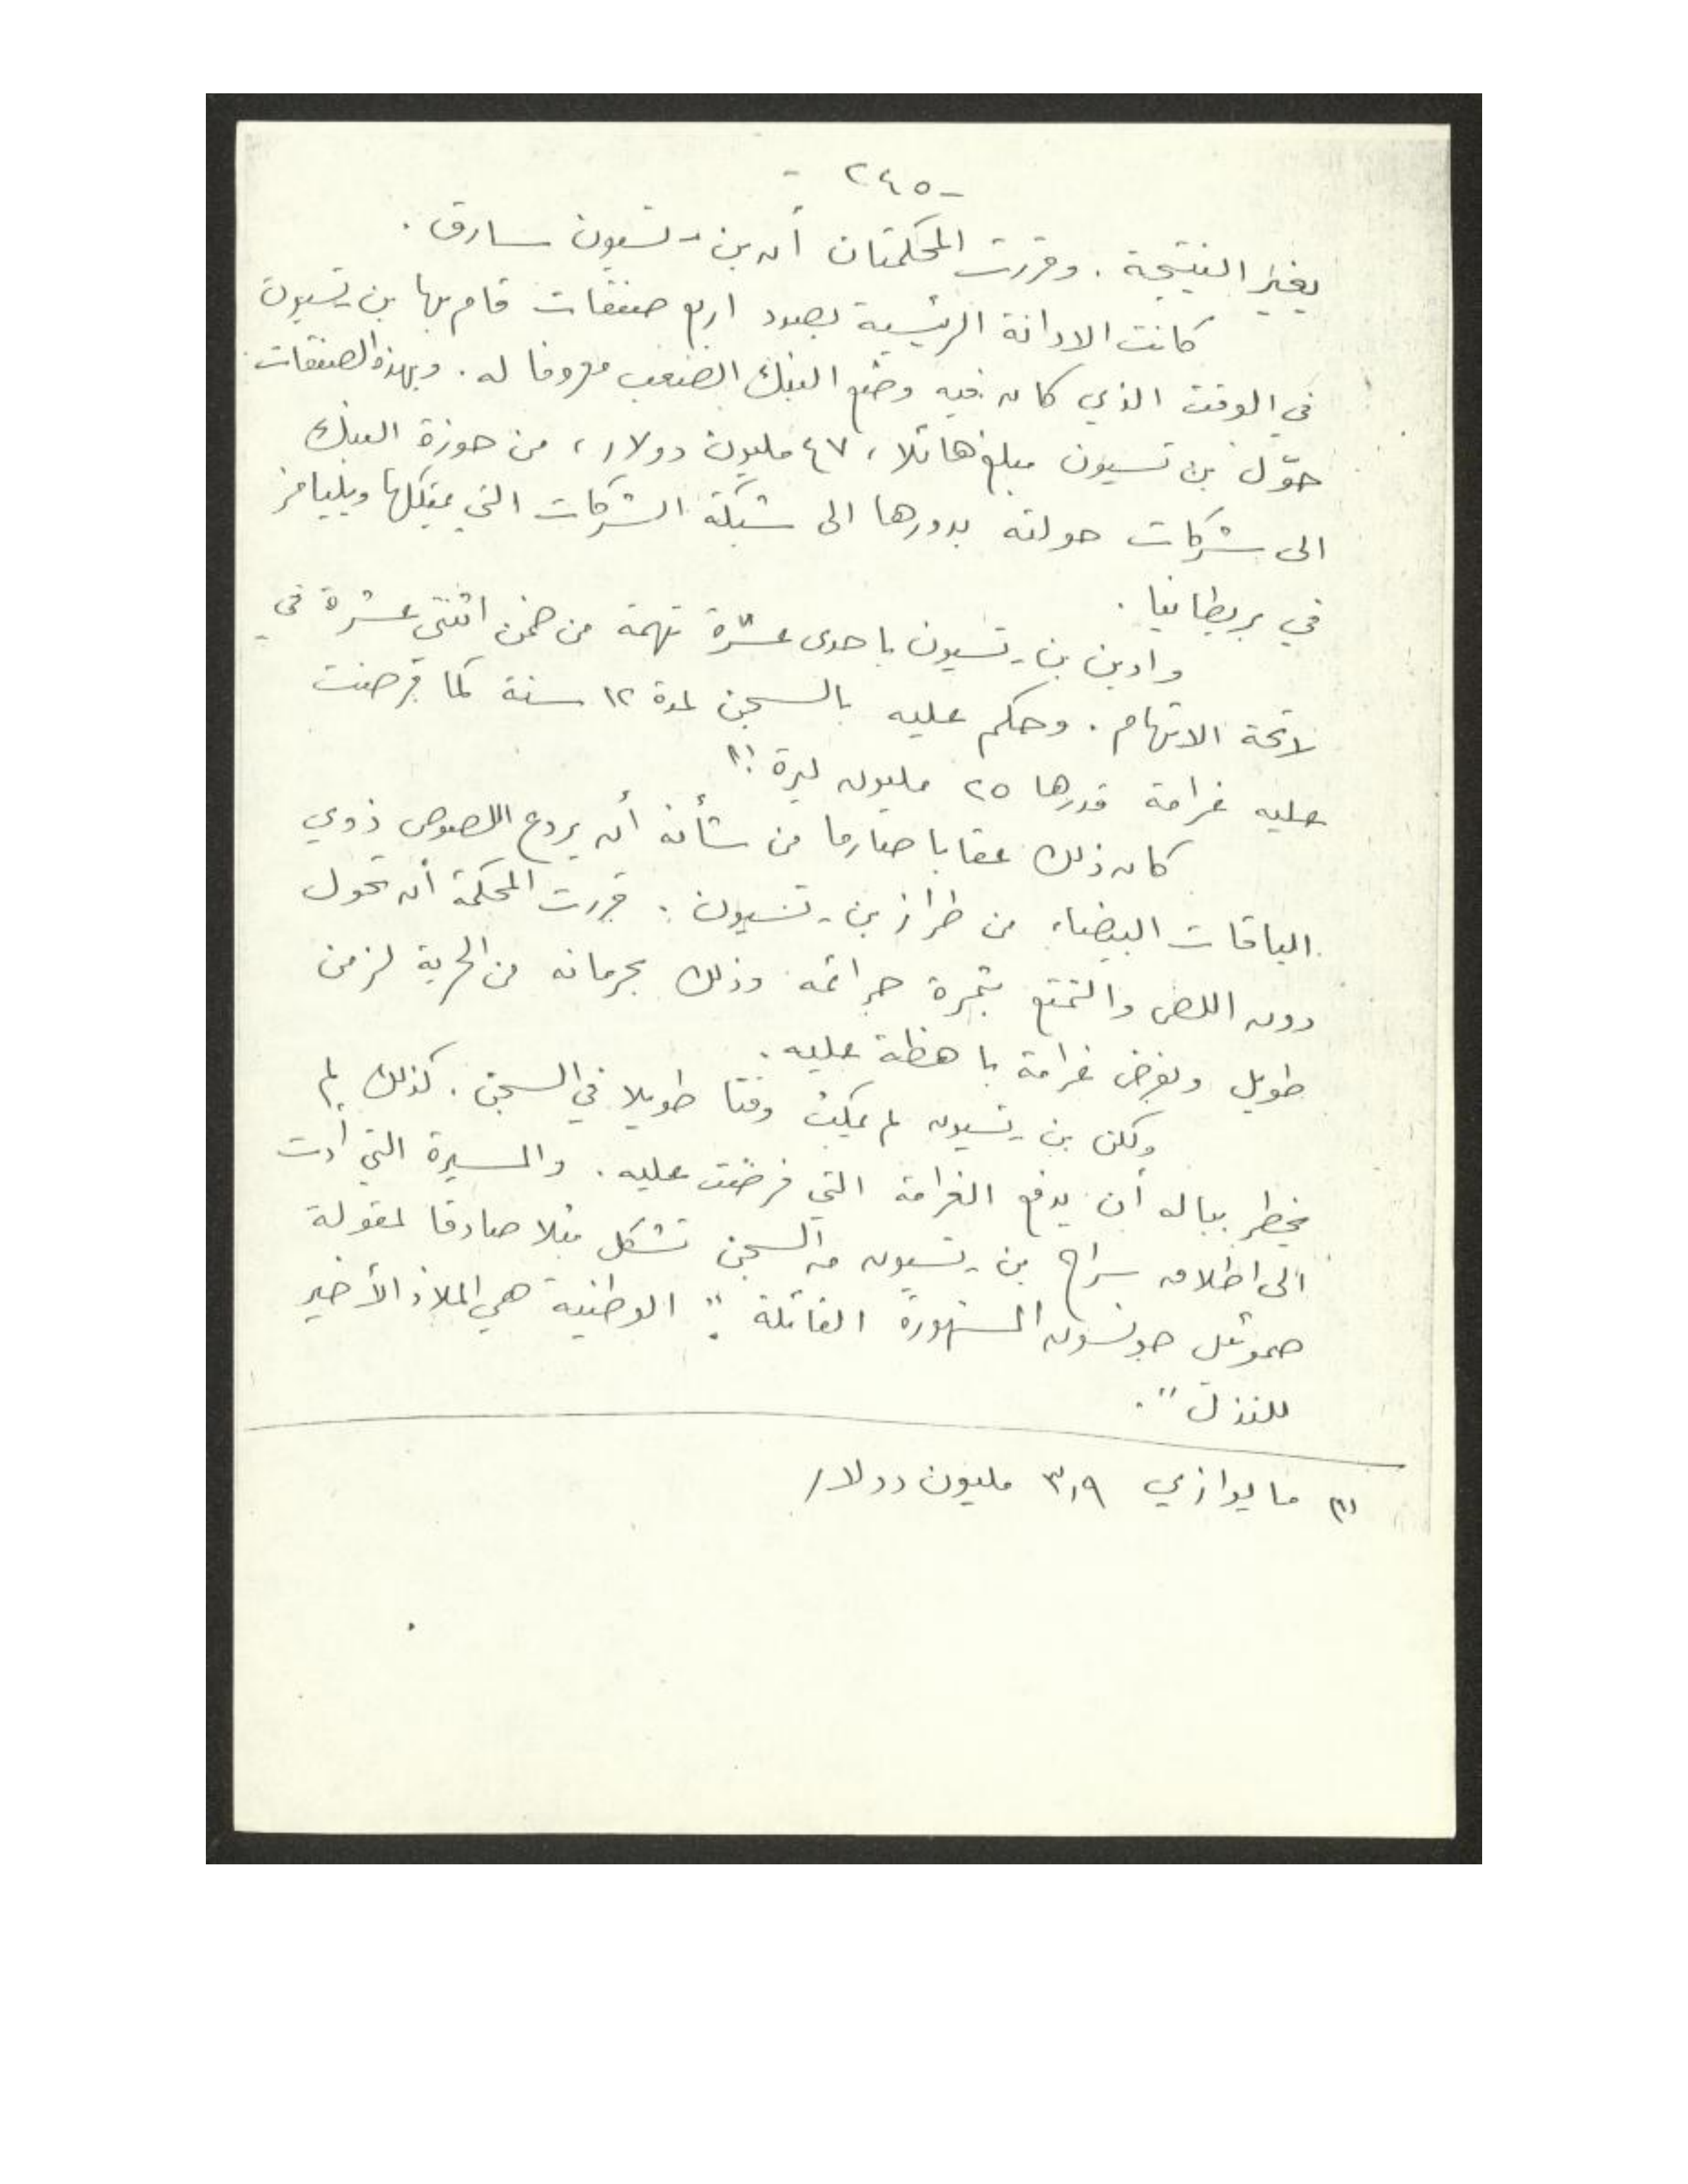 - ٢٤٥ -
يغير النتيجة . وقررت المحكمتان أن بن - تسيون سارق .
كانت الادانة الرئيسية بصدد اربع صفقات قام بها بن - تسيون
في الوقت الذي كان فيه وضع البنك الصعب معروفا له . وبهذه الصفقات
حوّل بن تسيون مبلغ هائلا ، ٤٧ مليون دولار ، من حوزة البنك
الى شركات حولته بدورها الى شبكة الشركات التي يمتلكها ويليامز
في بريطانيا .
وادين بن - تسيون باحدى عشرة تهمة من ضمن اثنتي عشرة في
لائحة الاتهام . وحكم عليه بالسجن لمدة ١٢ سنة كما فرضت
عليه غرامة قدرها ٢٥ مليون ليرة (١)
كان ذلك عقابا صارما من شأنه أن يردع اللصوص ذوي
الياقات البيضاء من طراز بن - تسيون . قررت المحكمة أن تحول
دون اللص والتمتع بثمرة جرائمه وذلك بحرمانه من الحرية لزمن
طويل وبفرض غرامة باهظة عليه .
ولكن بن - تسيون لم يمكث وقتا طويلا في السجن . كذلك لم
يخطر بباله أن يدفع الغرامة التي فرضت عليه . والمسيرة التي أدت
الى اطلاق سراح بن - تسيون من السجن تشكل مثلا صادقا لمقولة
صموئيل جونسون المشهورة القائلة : " الوطنية هي الملاذ الأخير
للنذل " .
(١) ما يوازي ٣,٩ مليون دولار